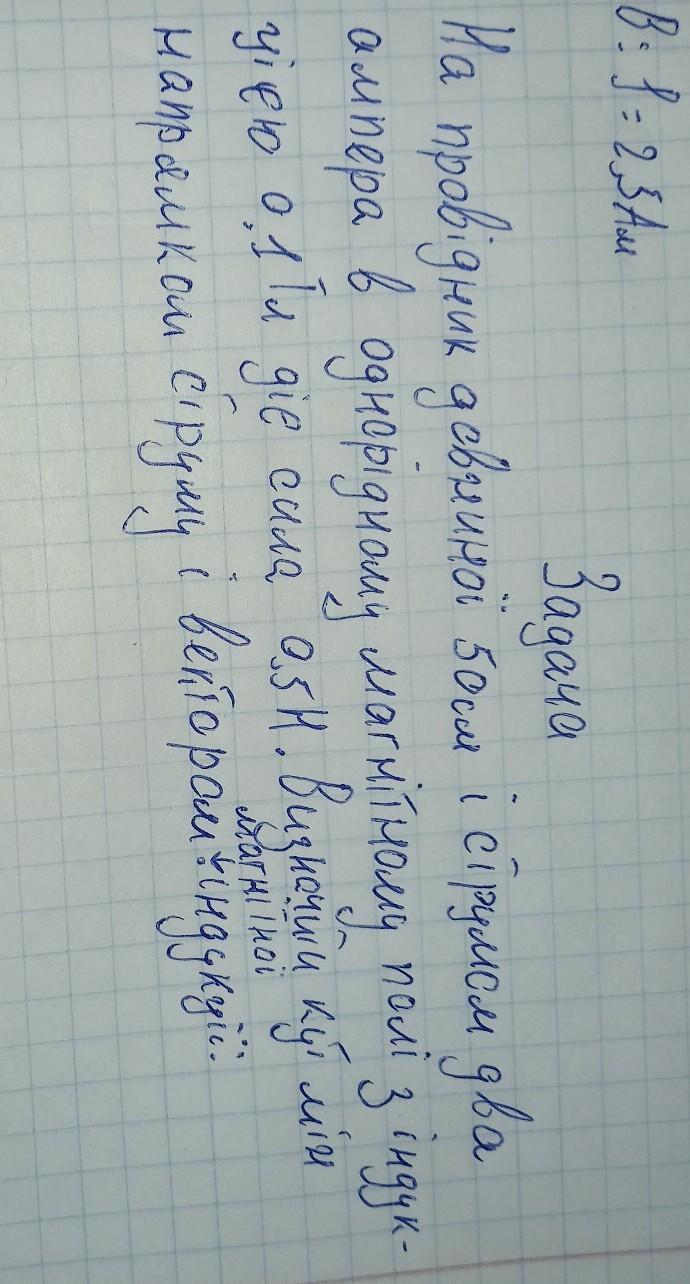 В: I = 2,5 Ам
Задача
На провідник довжиної 50 см і струмом два
ампера в однорідному магнітному полі з індук-
цією 0,1 Тл діє сила 0,5 Н. Визначити кут між
магнітної
напрямком струму і вектором індукції.